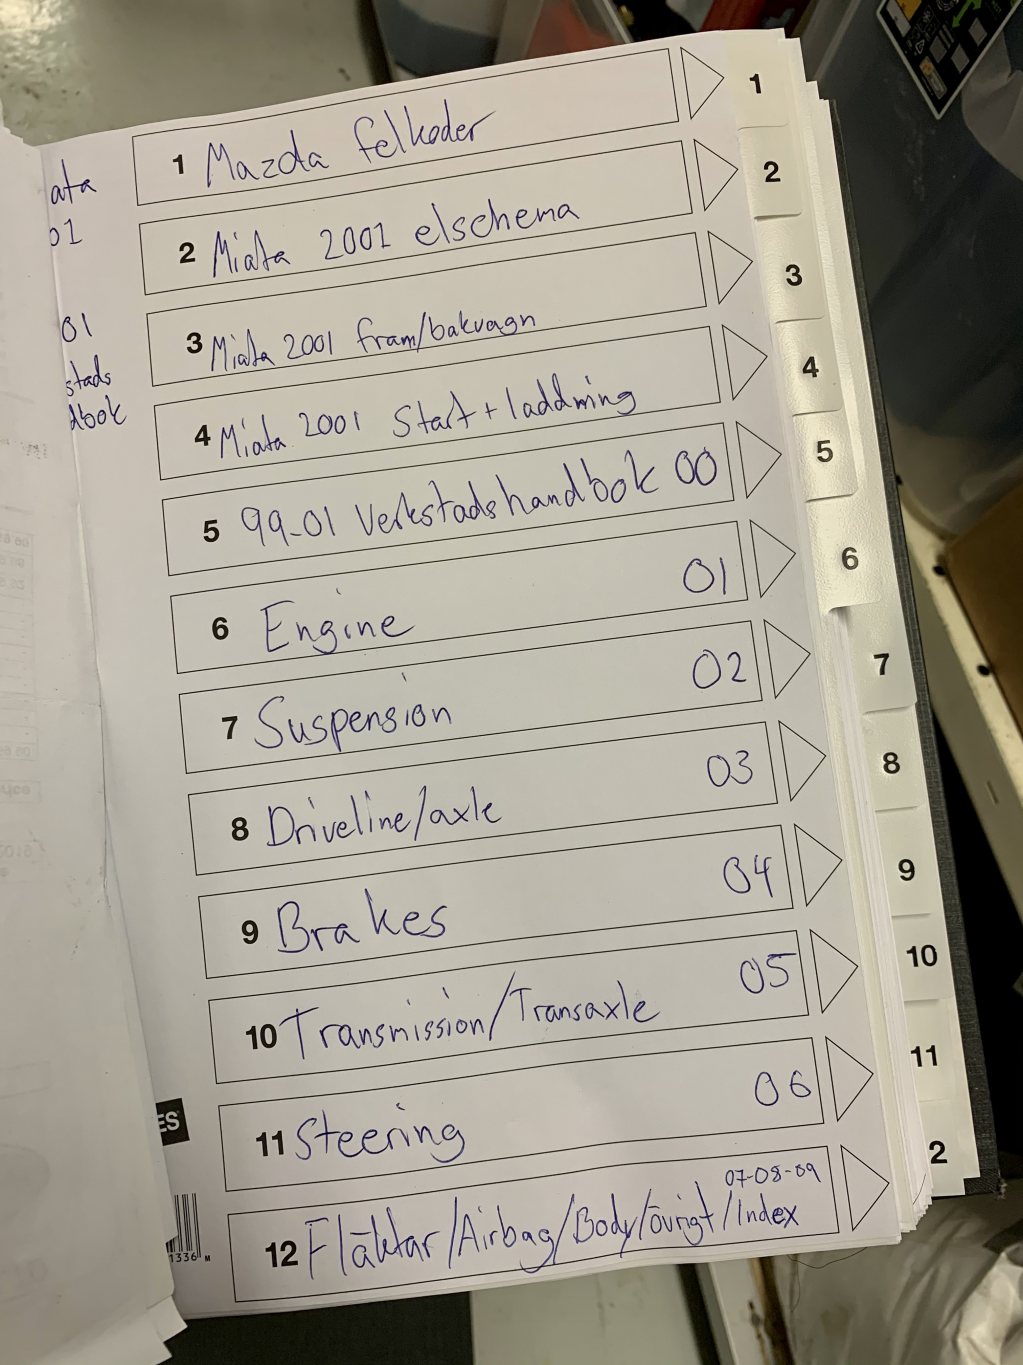 ata
01
01
stads
dbok
1 Mazda felkoder
2 Miata 2001 elschema
3 Miata 2001 fram/bakvagn
4 Miata 2001 Start + laddning
5 99-01 Verkstadshandbok 00
6 Engine 01
7 Suspension 02
8 Driveline/axle 03
9 Brakes 04
10 Transmission/Transaxle 05
11 Steering 06
07-08-09
12 Fläktar/Airbag/Body/övrigt/Index
1
2
3
4
5
6
7
8
9
10
11
2
ES
1336 M